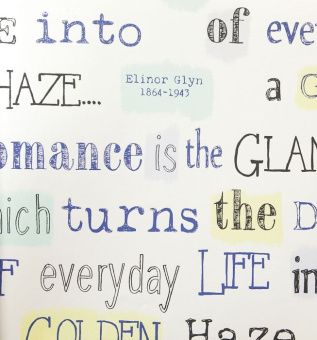 E into of eve
HAZE.... Elinor Glyn a G
1864-1943
omance is the GLAM
hich turns the D
F everyday LIFE in
GOLDEN Haze